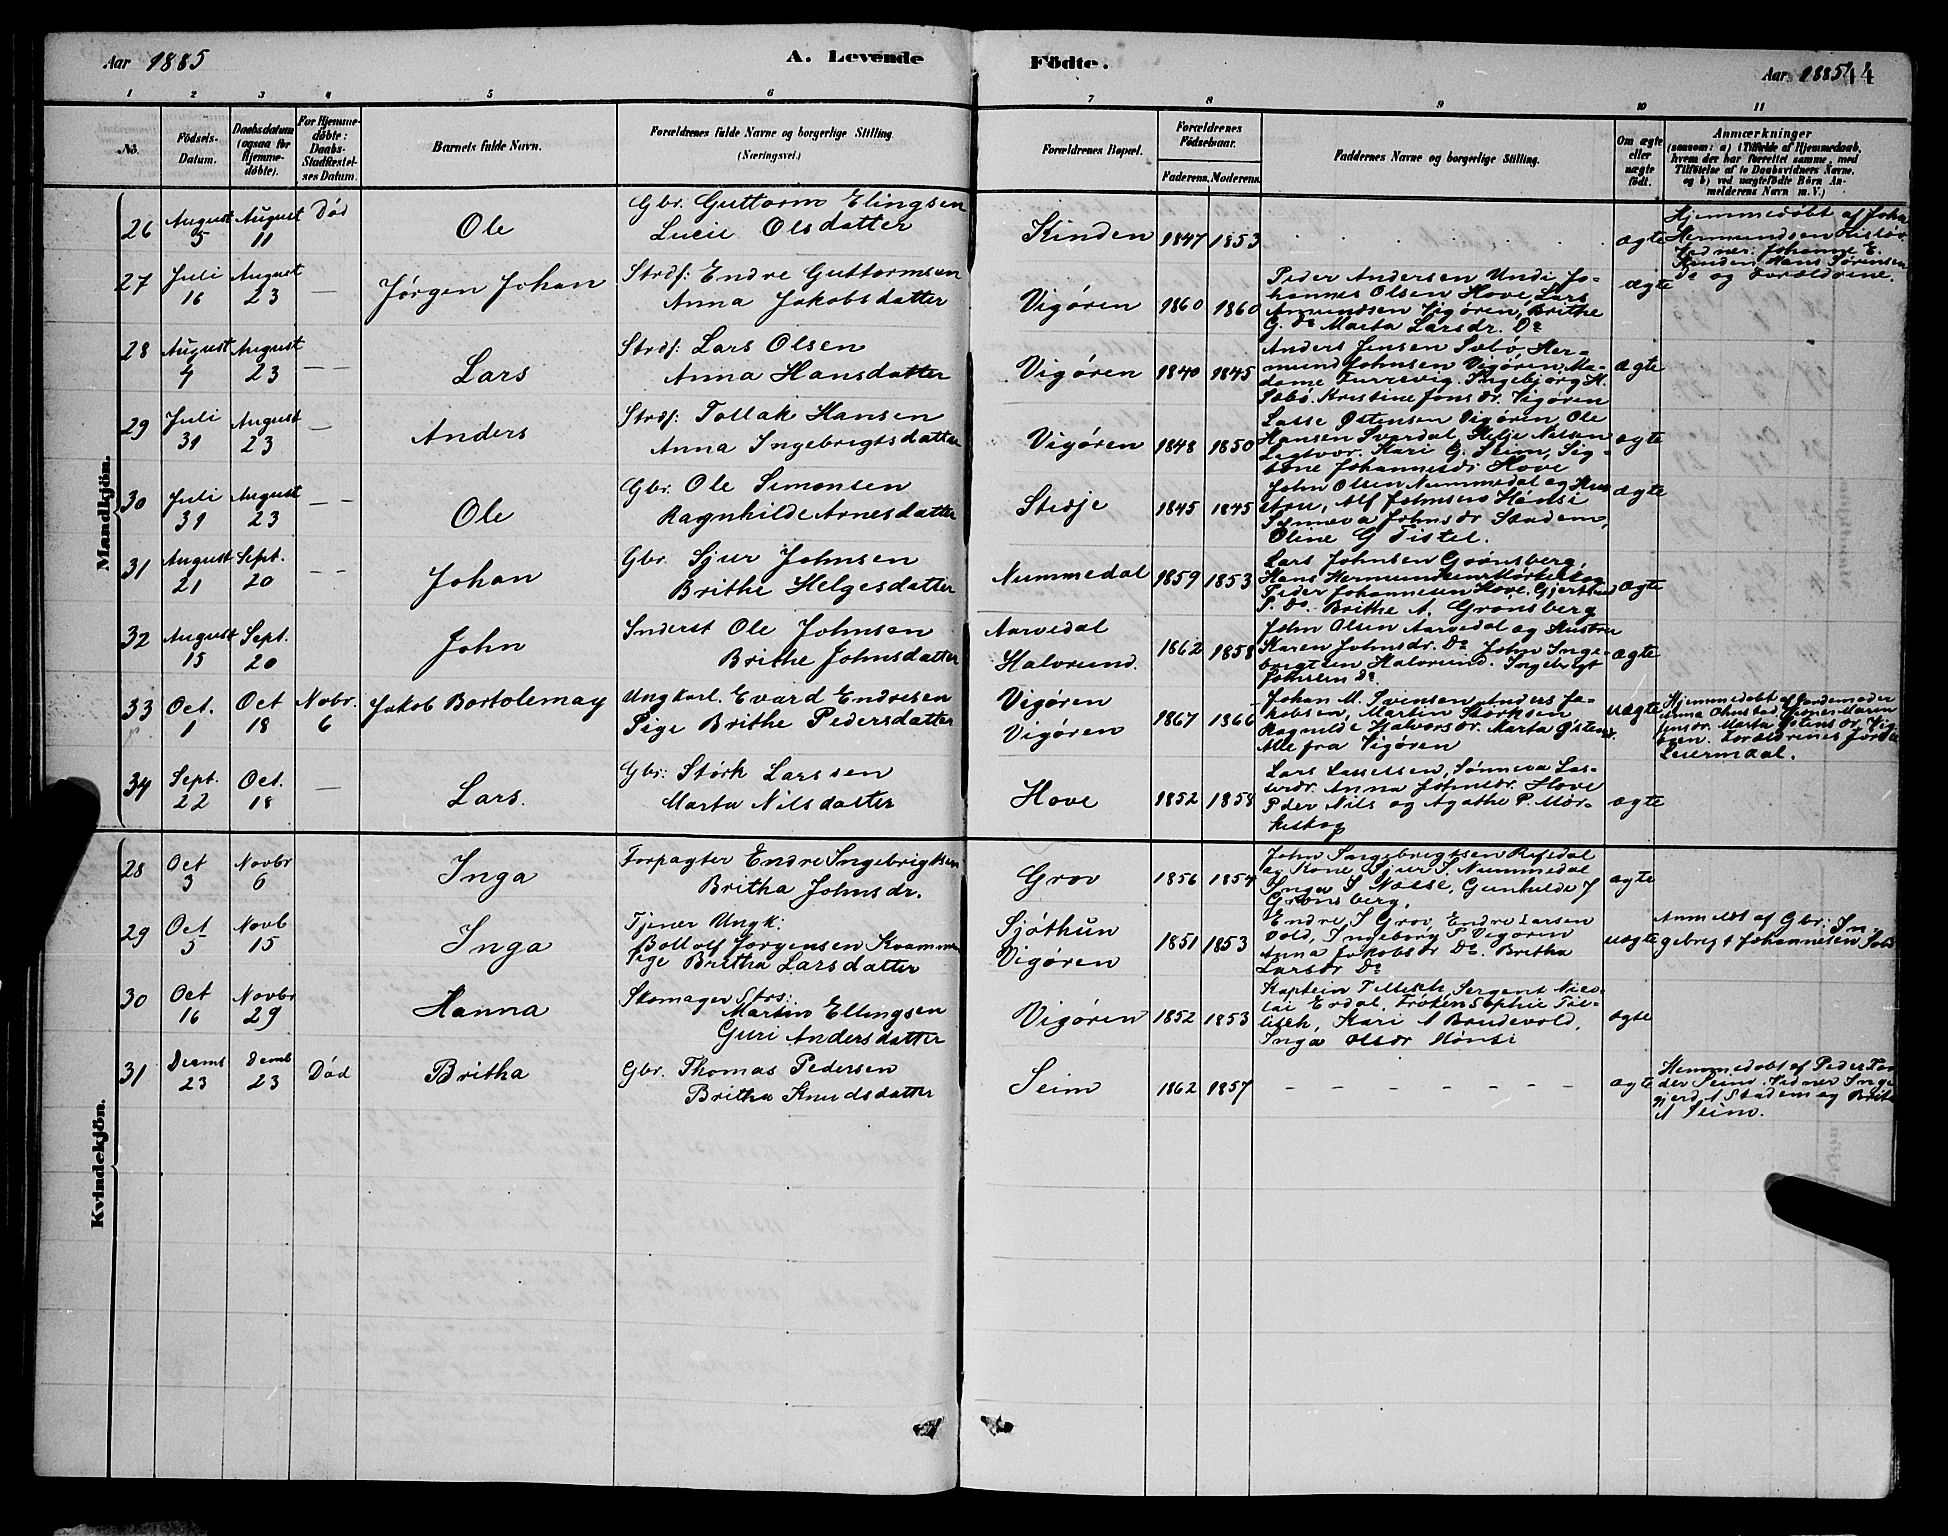 Aar 1885
A. Levende
Födte.
Aar 1885
44
1 2 3 4 5 6 7 8 9 10 11
No.
Födsels-
Datum.
Daabsdatum
(ogsaa for
Hjemme-
döbte).
For Hjemme-
döbte:
Daabs-
Stadfæstel-
ses Datum.
Barnets fulde Navn.
Forældrenes fulde Navne og borgerlige Stilling.
(Næringsvei.)
Forældrenes Bopæl.
Forældrenes
Födselsaar.
Faderens. Moderens.
Faddernes Navne og borgerlige Stilling.
Om ægte
eller
uægte
födt.
Anmærkninger
(saasom: a) i Tilfælde af Hjemmedaab,
hvem der har forrettet samme, med
Tilföielse af to Daabsvidners Navne,
og b) ved uægtefödte Börn An-
melderens Navn m. V.)
Mandkjön.
26 August 5 August 11 Död Ole
Gbr. Guttorm Elingsen
Lucie Olsdatter
Kinden 1847 1853 ægte
Hjemmedöbt af Joha
Hermundsen
Vidner: Johanne E.
Kinden, Hans Sörensen
Do og Forældrene.
27 Juli 16 August 23 — Jørgen Johan
Strds: Endre Guttormsen
Anna Jakobsdatter
Vigøren 1860 1860
Peder Andersen Undi Jo-
hannes Olsen Hove, Lars
Amundsen Vigøren, Brithe
G. Do Marta Larsdr. Do
ægte
28 August 4 August 23 — Lars
Strds: Lars Olsen
Anna Hansdatter
Vigøren 1840 1845
Anders Jensen Sæbö, Her-
mund Johnsen Vigøren, Ma-
dame Turresvig. Ingebjørg H.
Sæbö. Kristine Jonsdr. Vigøren
ægte
29 Juli 31 August 23 — Anders
Strds: Tollak Hansen
Anna Ingebrigtsdatter
Vigøren 1848 1850
Lasse Østensen Vigøren, Ole
Hansen Svardal, Helje Nilsen
Kari G. Seim, Sig-
Johannesdr Hove
ægte
30 Juli 31 August 23 — Ole
Gbr. Ole Simonsen
Ragnhilde Arnesdatter
Stedje 1845 1845
John Olsen Nummedal og Hus
tru, Alf Johnsen Hønsi
Synneva Johnsdr Stadem,
Oline G Tistel.
ægte
31 August 21 Sept. 20 — Johan
Gbr. Sjur Johnsen
Brithe Helgesdatter
Nummedal 1859 1853
Lars Johnsen Grønsberg,
Hans Hermundsen Mørkeskog
Peder Johannesen Hove, Gjerthrud
P. Do. Brithe A. Grønsberg
ægte
32 August 15 Sept. 20 John
Inderst Ole Johnsen
Brithe Johnsdatter
Aarvedal
Halvrund. 1862 1858
John Olsen Aarvedal og Hustru
Karen Johnsdr. Do John Inge-
brigtsen Halvrund. Ingebrigt
Johnsen Do
ægte
33 Oct. 1 Oct 18 Novbr. 6 Jakob Bortolemay
Ungkarl. Evard Endresen
Pige Brithe Pedersdatter
Vigøren
Vigøren 1867 1866
Johan M. Svensen, Anders Ja-
kobsen, Martin Størksen
Ragnilde Halvorsdr. Marta Østensdr.
Alle fra Vigøren
uægte
Hjemmedøbt af Jordemoder
Anna Vidner: Maren
Jensdr. Marta Østensdr. Vig-
øren. Forældrenes første
Leiermaal.
34 Sept. 22 Oct. 18 — Lars.
Gbr: Størk Larssen
Marta Nilsdatter
Hove 1852 1858
Lars Lassesen, Sønneva Las-
sesdr. Anna Johnsdr. Hove
Peder Nils og Agathe P. Mør-
keskog
ægte
Kvindekjön.
28 Oct 3 Novbr 6 Inga
Forpagter Endre Ingebrigtsen
Britha Johnsdr.
Grov 1856 1854
John Ingebregtsen Refsdal
og Kone, Sjur S. Nummedal
Inga S Næsse, Gunhilde J
Grønsberg,
ægte
29 Oct 5 Novb 15 Inga
Tjener Ungk:
Bottolf Jørgensen Kvamme
Pige Britha Larsdatter
Sjøthun
Vigøren 1851 1853
Endre I Grov, Endre Larsen
Vold, Ingeborg P Vigøren
Anna Jakobsdr Do. Britha
Larsdr Do
uægte
Anmeldt af Gbr: In
gebrigt Johannesen
30 Oct 16 Novbr 29 Hanna
Skomager Strs:
Martin Ellingsen
Guri Andersdatter
Vigøren 1852 1853
Kaptein Tillisch, Sergent Nico-
lai Erdal, Frøken Sophie Til-
lisch, Kari A Brudevold,
Inga Olsdr Hønsi
ægte
31 Decmb 23 Decmb 23 Död Britha
Gbr. Thomas Pedersen
Britha Knudsdatter
Seim 1862 1857 — — — — — — — ægte
Hemmedøbt af Peder
Seim. Vidner Inge
gjerd A Stadem og Brita
A Seim.